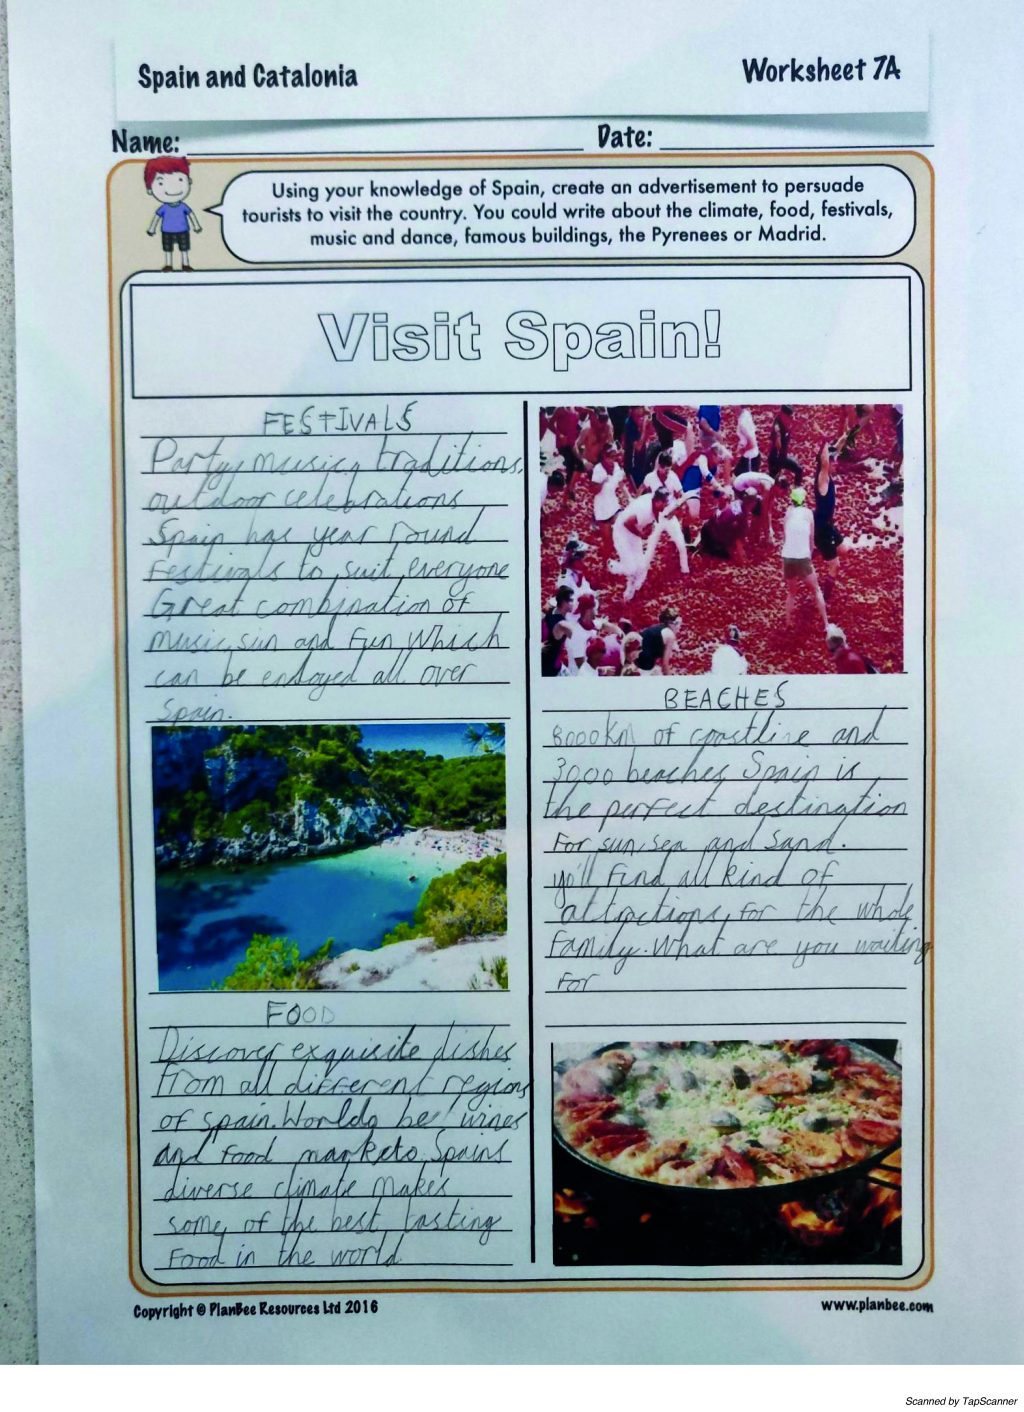 Spain and Catalonia
Worksheet 7A
Name:
Date:
Using your knowledge of Spain, create an advertisement to persuade
tourists to visit the country. You could write about the climate, food, festivals,
music and dance, famous buildings, the Pyrenees or Madrid.
Visit Spain!
FESTIVALS
Party, music, traditions,
outdoor celebrations
Spain has year round
Festivals to suit everyone
Great combination of
music, sun and Fun Which
can be enjoyed all over
Spain.
FOOD
Discover exquisite dishes
from all different regions
of spain. Worlds best wines
and food markets, Spains
diverse climate makes
some of the best tasting
Food in the world
BEACHES
8000km of coastline and
3000 beaches, Spain is
the perfect destination
For sun, sea and sand.
yo'll Find all kind of
attractions for the whole
Family. What are you waiting
For
Copyright © PlanBee Resources Ltd 2016
www.planbee.com
Scanned by TapScanner